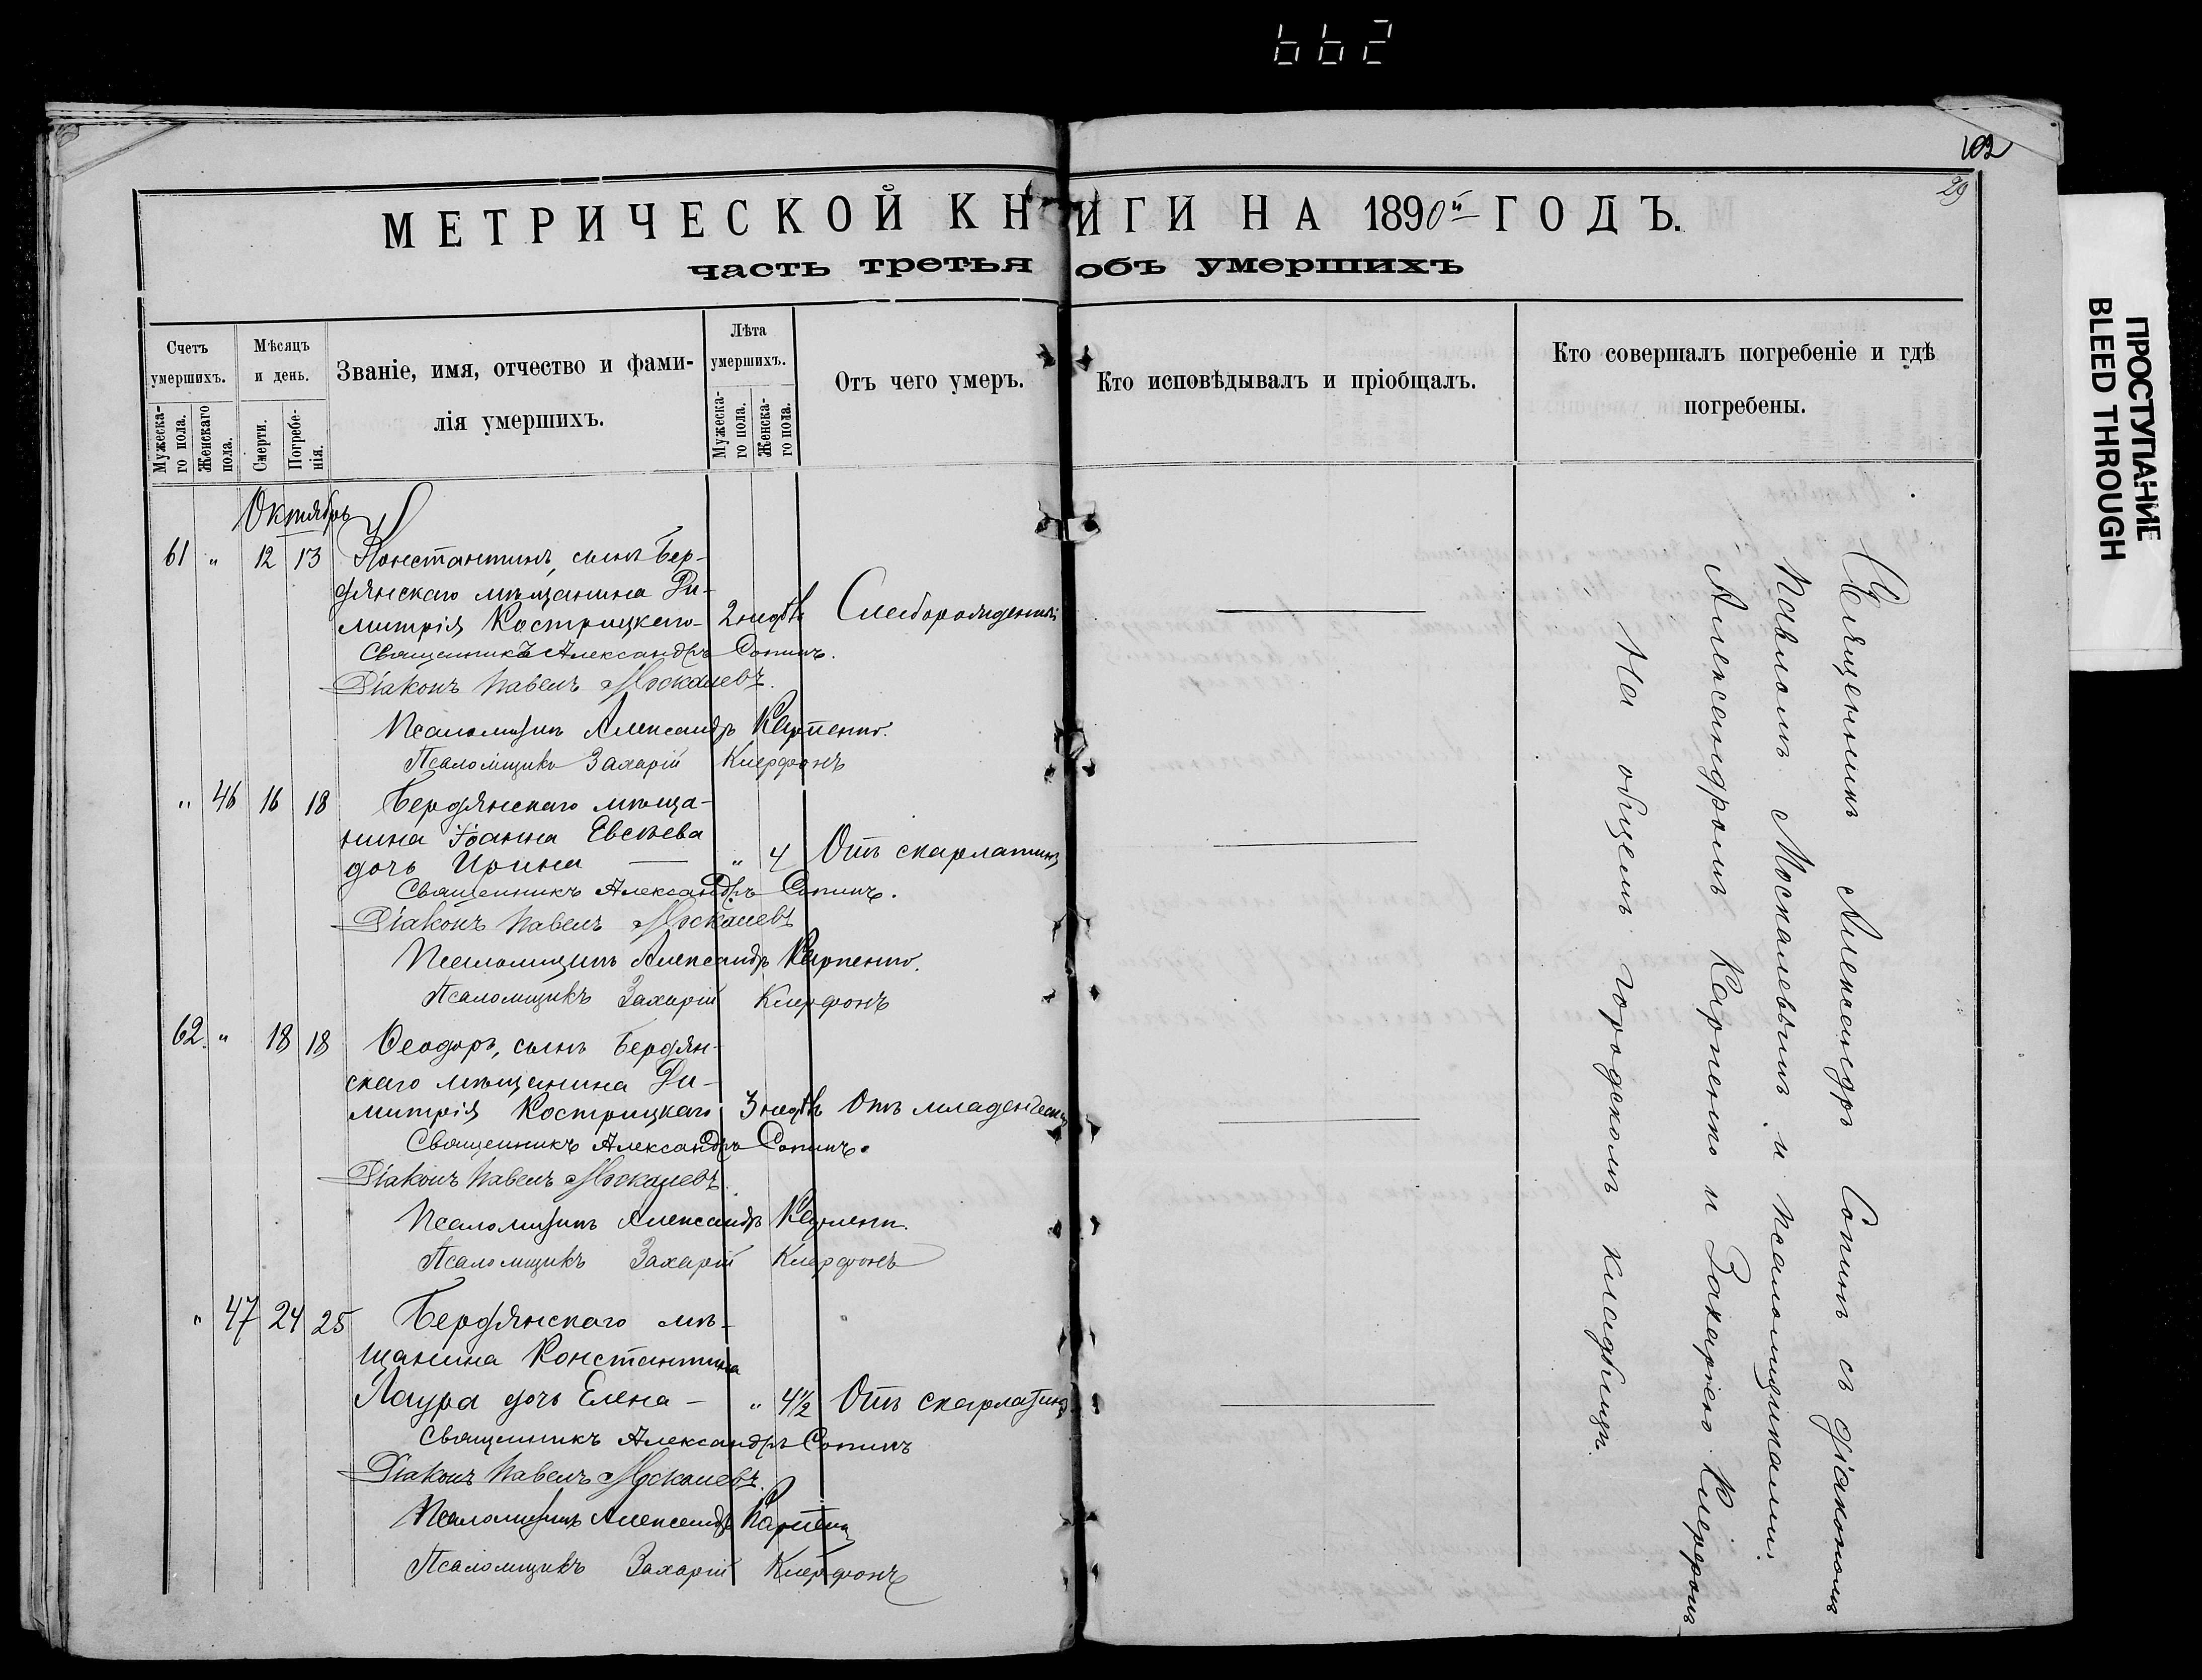 662
102
29
МЕТРИЧЕСКОЙ КНИГИ НА 1890й ГОДЪ.
часть третья объ умершихъ
Счетъ умершихъ.
Мужеска-го пола.
Женскаго пола.
Мѣсяцъ и день.
Смерти.
Погребе-нія.
Званіе, имя, отчество и фами-
лія умершихъ.
Лѣта умершихъ.
Мужеска-го пола.
Женска-го пола.
Отъ чего умеръ.
Кто исповѣдывалъ и пріобщалъ.
Кто совершалъ погребеніе и гдѣ
погребены.
Октябрь
61 " 12 13 Константинъ, сынъ Бер-
дянскаго мѣщанина Ди-
митрія Кострицкаго - 2 недѣл Слаборожденный
Священникъ Александръ Сопинъ.
Діаконъ Павелъ Москалевъ.
Псаломщикъ Александръ Карпенко.
Псаломщикъ Захарій Клерфонъ
" 46 16 18 Бердянскаго мѣща-
нина Іоанна Евсѣева
дочь Ирина — " 4 Отъ скарлатины
Священникъ Александръ Сопинъ.
Діаконъ Павелъ Москалевъ
Псаломщикъ Александръ Карпенко.
Псаломщикъ Захарій Клерфонъ
62. " 18 18 Ѳеодоръ, сынъ Бердян-
скаго мѣщанина Ди-
митрія Кострицкаго 3 недѣл Отъ младенческ
Священникъ Александръ Сопинъ.
Діаконъ Павелъ Москалевъ.
Псаломщикъ Александръ Карпенк.
Псаломщикъ Захарій Клерфонъ
" 47 24 25 Бердянскаго мѣ-
щанина Константина
Лаура дочь Елена - " 4½ Отъ скарлатины
Священникъ Александръ Сопинъ
Діаконъ Павелъ Москалевъ.
Псаломщикъ Александръ Карпенко
Псаломщикъ Захарій Клерфонъ
Священникъ Александръ Сопинъ съ діакономъ
Павломъ Москалевымъ и псаломщиками:
Александромъ Карпенко и Захаріею Клерфонъ
На общемъ городскомъ кладбищѣ.
ПРОСТУПАНИЕ
BLEED THROUGH